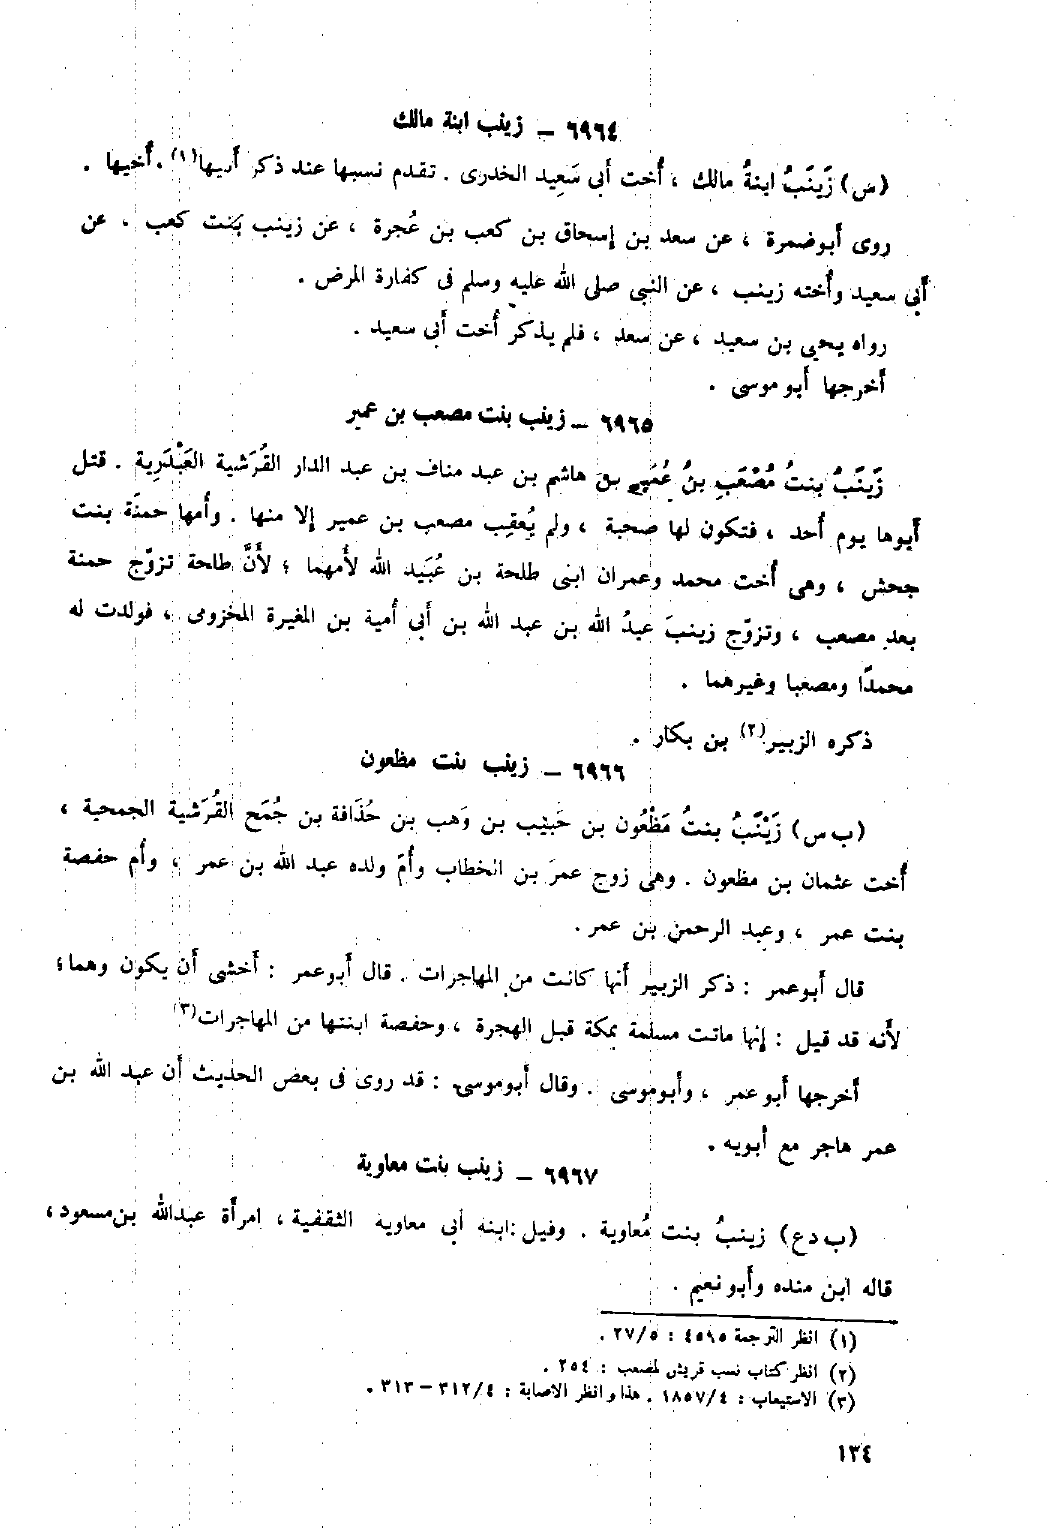 ٦٩٦٤ – زينب ابنة مالك
(س) زَينَبُ ابنةُ مالك ، أُخت أبى سَعِيد الخدرى . تقدم نسبها عند ذكر أبيها(١) . أخيها .
روى أبو ضمرة ، عن سعد بن إسحاق بن كعب بن عُجرة ، عن زينب بنت كعب . عن
أبى سعيد وأُخته زينب ، عن النبى صلى الله عليه وسلم فى كفارة المرض .
رواه يحيى بن سعيد ، عن سعد ، فلم يذكر أُخت أبى سعيد .
أخرجها أبو موسى .
٦٩٦٥ – زينب بنت مصعب بن عمير
زَينَبُ بنتُ مُصْعَبِ بنُ عُمَيرِ بن هاشم بن عبد مناف بن عبد الدار القُرَشية العَبْدَرِية . قتل
أبوها يوم أُحد ، فتكون لها صحبة ، ولم يُعقِب مصعب بن عمير إلا منها . وأُمها حمنَة بنت
جحش ، وهى أُخت محمد وعمران ابنى طلحة بن عُبَيد الله لأُمهما ؛ لأَنَّ طلحة تزوّج حمنة
بعد مصعب ، وتزوّج زينبَ عبدُ الله بن عبد الله بن أبى أُمية بن المغيرة المخزومى ، فولدت له
محمدًا ومصعبا وغيرهما .
ذكره الزبير(٢) بن بكار .
٦٩٦٦ – زينب بنت مظعون
(ب س) زَيْنَبُ بنتُ مَظْعُون بن حَبيب بن وَهب بن حُذَافة بن جُمَح القُرَشية الجمحية ،
أُخت عثمان بن مظعون . وهى زوج عمرَ بن الخطاب وأُمّ ولده عبد الله بن عمر ، وأُم حفصة
بنت عمر ، وعبد الرحمن بن عمر .
قال أبو عمر : ذكر الزبير أنها كانت من المهاجرات . قال أبو عمر : أخشى أن يكون وهما ؛
لأَنه قد قيل : إنها ماتت مسلمة بمكة قبل الهجرة ، وحفصة ابنتها من المهاجرات(٣)
أخرجها أبو عمر ، وأبو موسى . وقال أبو موسى : قد روى فى بعض الحديث أن عبد الله بن
عمر هاجر مع أبويه .
٦٩٦٧ – زينب بنت معاوية
(ب د ع) زينبُ بنت مُعاوية . وقيل : ابنة أبى معاوية الثقفية ، امرأة عبد الله بن مسعود ،
قاله ابن منده وأبو نعيم .
(١) انظر الترجمة ٤٥٩٥ : ٢٧/٥ .
(٢) انظر كتاب نسب قريش لمصعب : ٢٥٤ .
(٣) الاستيعاب : ١٨٥٧/٤ . هذا وانظر الاصابة : ٣١٢/٤ – ٣١٣ .
١٣٤